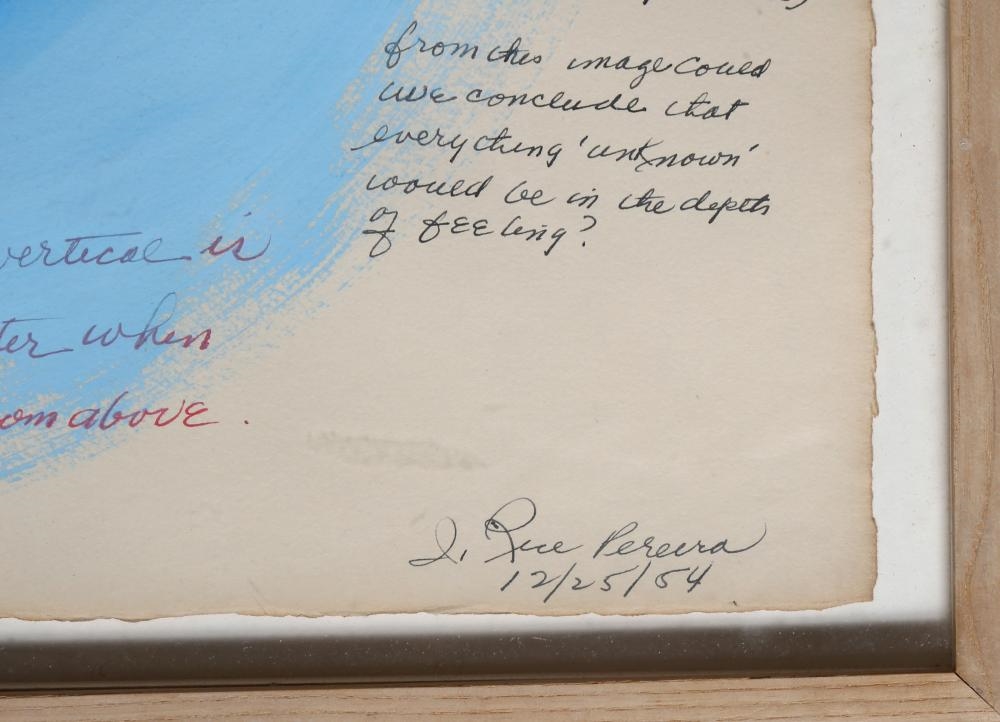 from this image could
we conclude that
everything 'unknown'
would be in the depth
of feeling?
vertical is
ter when
om above.
I. Rice Pereira
12/25/54